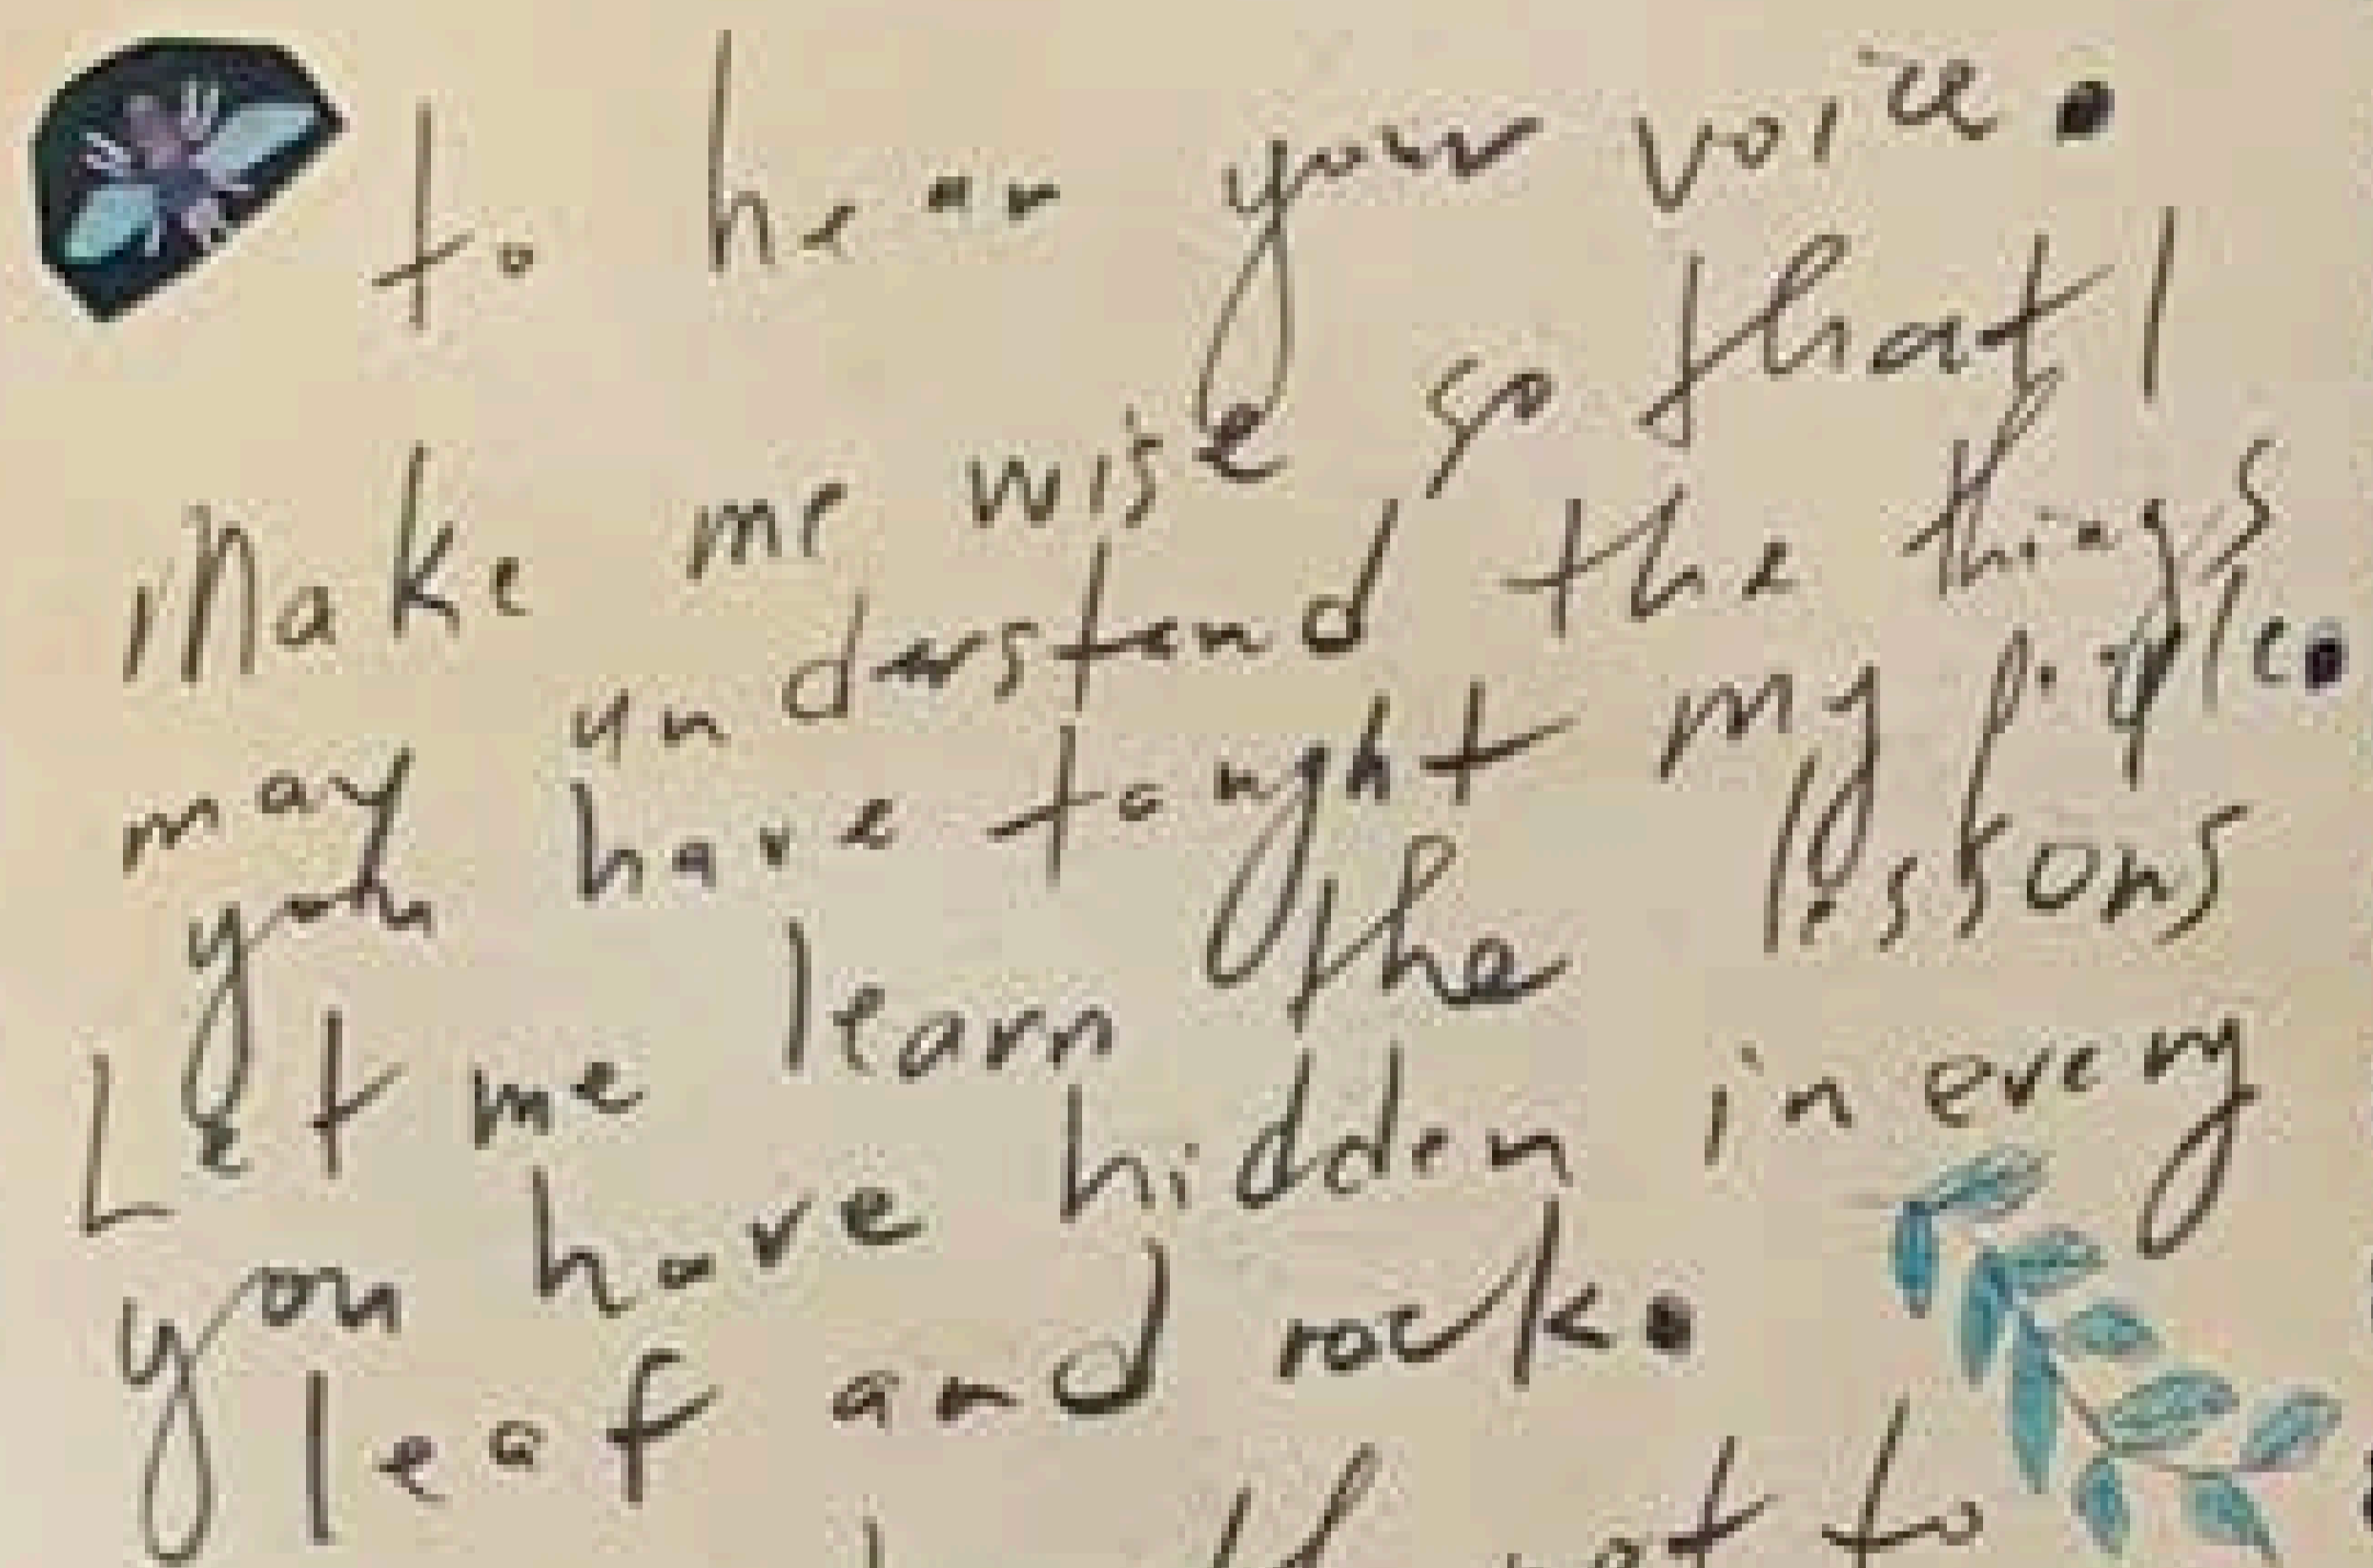 to hear your voice.
Make me wise so that I
may understand the things
you have taught my people.
Let me learn the lessons
you have hidden in every
leaf and rock.
not to